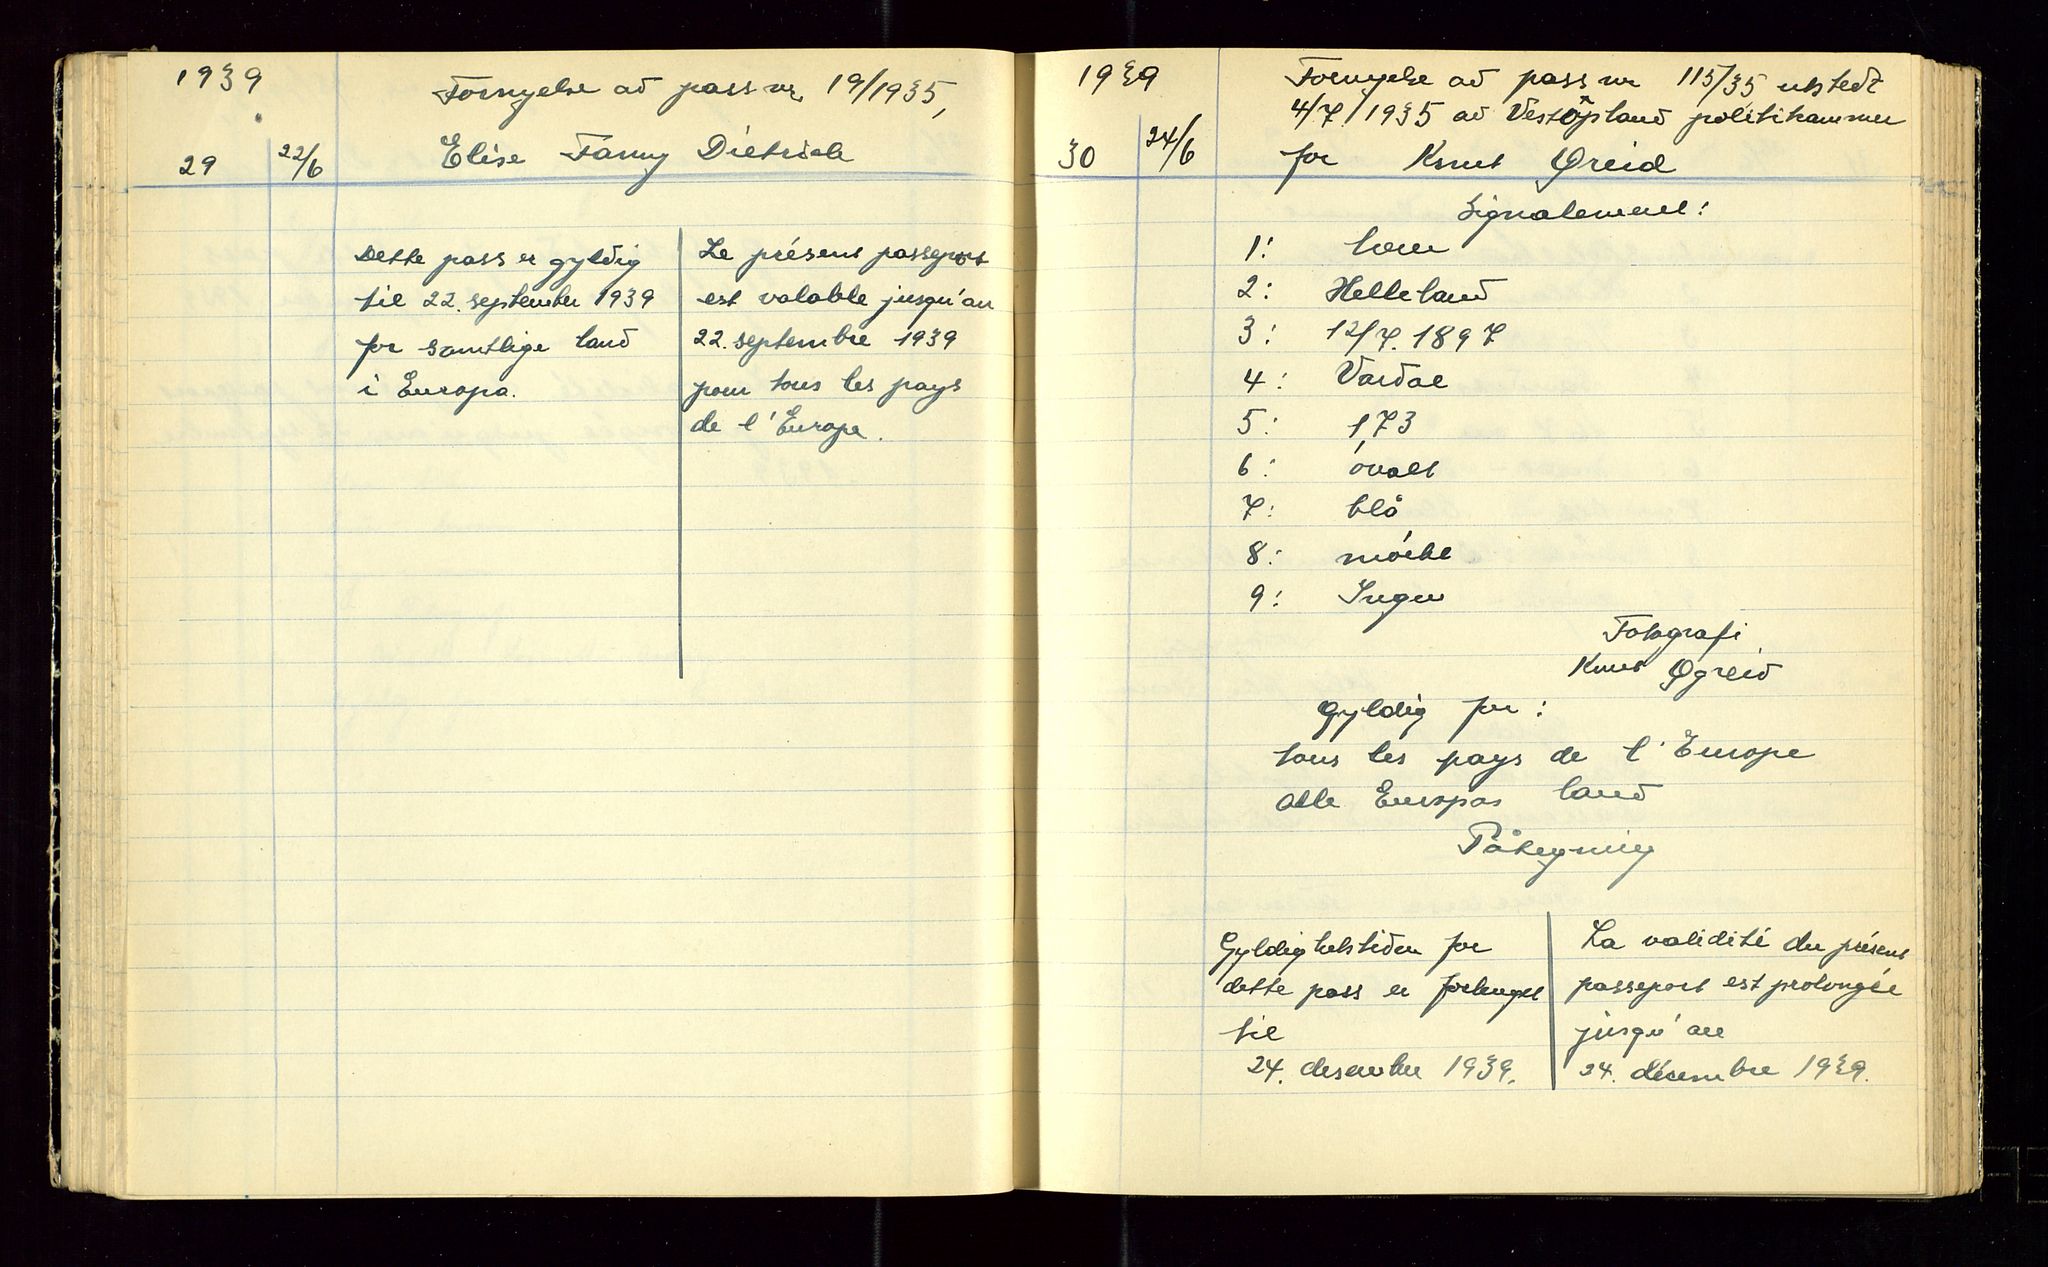 1939
Fornyelse av pass nr. 19/1935,
29 22/6 Elise Fanny Dietrich
Dette pass er gyldig
til 22. september 1939
for samtlige land
i Europa.
Le présent passeport
est valable jusqu'au
22. septembre 1939
pour tous les pays
de l'Europe.
1939
Fornyelse av pass nr 115/35 utstedt
4/7 1935 av Vestoppland politikammer
30 24/6 for Knut Øreid
Signalement:
1:
2: Helleland
3: 12/7. 1897
4: Vardal
5: 173
6: ovalt
7: blå
8: mörke
9: Ingen
Fotografi
Knut Øgreid
Gyldig for:
tous les pays de l'Europe
alle Europas land
Påtegning
Gyldighetstiden for
dette pass er forlenget
til
24. desember 1939.
La validité du présent
passeport est prolongée
jusqu'au
24. décembre 1939.